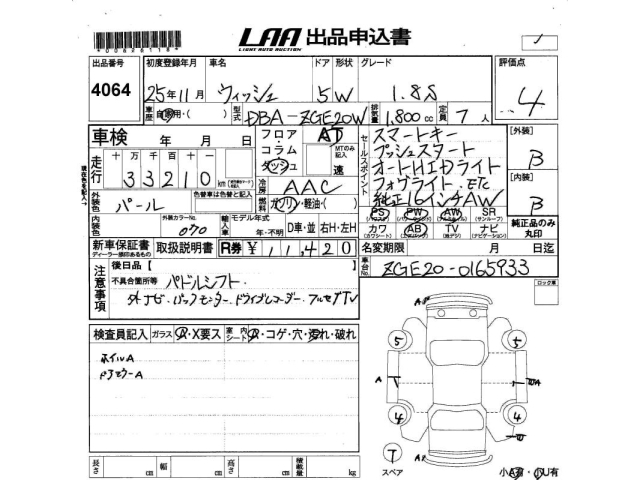 LAA 出品申込書
LIGHT AUTO AUCTION
出品番号 4064
初度登録年月 車名 ドア 形状 グレード 評価点
25年11月 ウィッシュ 5 W 1.8S 4
車歴 自家用・( ) 型式 DBA-ZGE20W 排気量 1,800cc 定員 7人
車検 年 月 日
フロア・コラム・ダッシュ
AT
MTのみ記入
速
走行 十万千百十
33210 km
冷房 AAC
燃料 ガソリン・軽油・( )
セールスポイント
スマートキー
プッシュスタート
オートHIDライト
フォグライト.ETC
純正16インチAW
[外装] B
[内装] B
純正品のみ丸印
外装色 パール 色替車は色替と記入
内装色
外装カラーNo. 070
輸入車 モデル年式 年・不明 D車・並 右H・左H
PS PW AW SR
(パワステ) (パワーウィンドウ) (アルミホイール) (サンルーフ)
カワ AB TV ナビ
(カワシート) (エアバック) (地デジ) (ナビゲーション)
新車保証書 取扱説明書 R券 ¥11,420
ディーラー捺印あるもの
名変期限 月 日迄
車台No. ZGE20-0165933
注意事項
後日品【 】
不具合箇所等 パドルシフト.
外ナビ.バックモニター.ドライブレコーダー.フルセグTV
ロック車
検査員記入 ガラス A・X要ス 室内シート A・コゲ・穴・汚れ・破れ
ホイルA
ドアミラーA
5 5
A
4 4
T
スペア
小A有・小U有
長さ cm 幅 cm 高さ cm 積載量 kg